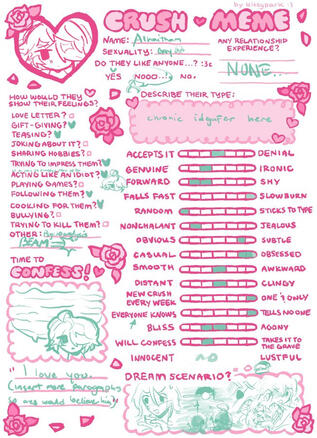 by kittypark :3
CRUSH MEME
NAME: Alhaitham
SEXUALITY:
ANY RELATIONSHIP EXPERIENCE?
DO THEY LIKE ANYONE...? :3c
YES NOOO..! NO.
NONE..
HOW WOULD THEY SHOW THEIR FEELINGS?
DESCRIBE THEIR TYPE:
chronic idgufer here
LOVE LETTER?
GIFT-GIVING?
TEASING?
JOKING ABOUT IT?
SHARING HOBBIES?
TRYING TO IMPRESS THEM?
ACTING LIKE AN IDIOT?
PLAYING GAMES?
FOLLOWING THEM?
COOKING FOR THEM?
BULLYING?
TRYING TO KILL THEM?
OTHER:
BEAM
ACCEPTS IT DENIAL
GENUINE IRONIC
FORWARD SHY
FALLS FAST SLOWBURN
RANDOM STICKS TO TYPE
NONCHALANT JEALOUS
OBVIOUS SUBTLE
CASUAL OBSESSED
SMOOTH AWKWARD
DISTANT CLINGY
NEW CRUSH EVERY WEEK ONE & ONLY
EVERYONE KNOWS TELLS NO ONE
BLISS AGONY
WILL CONFESS TAKES IT TO THE GRAVE
INNOCENT no LUSTFUL
TIME TO
CONFESS!
"I love you.
(insert more paragraphs
so  would believe him)"
DREAM SCENARIO?